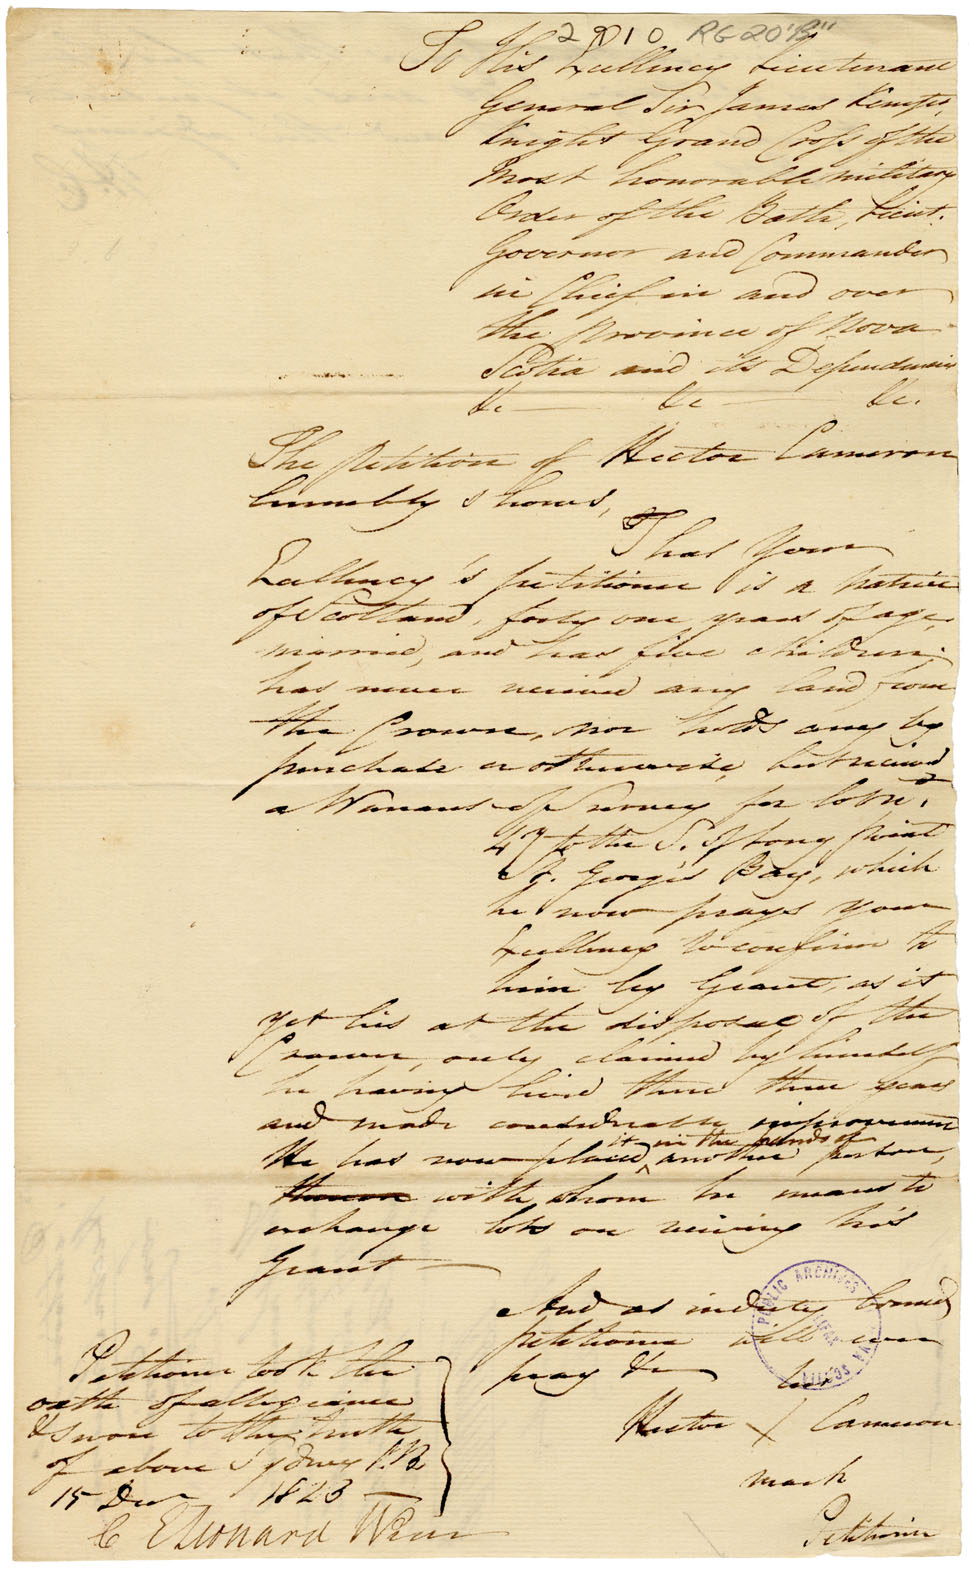 2910 RG 20 "B"
To His Excellency Lieutenant
General Sir James Kempt,
Knight Grand Cross of the
Most honorable military
Order of the Bath, Lieut.
Governor and Commander
in Chief in and over
the province of Nova
Scotia and its Dependencies
&c — &c — &c.
The petition of Hector Cameron
humbly shows,
That Your
Excellency's petitioner is a native
of Scotland, forty one years of age,
married, and has five children:
has never received any land from
the Crown, nor holds any by
purchase or otherwise, but received
a Warrant of Survey for lot No.
47 to the S. of Long point
St. George's Bay, which
he now prays your
Excellency to confirm to
him by Grant, as it
yet lies at the disposal of the
Crown, only claimed by himself
he having lived there three years
and made considerable improvement
it in the hands of
He has now placed ^ another person,
with whom he means to
exchange lots on receiving his
Grant —
And as in duty bound
petitioner will ever
pray &c
his
Hector X Cameron
mark
Petitioner
Petitioner took the
oath of allegiance
& swore to the truth
of above Sydney C.B.
15 Decr 1823
C E Leonard
PUBLIC ARCHIVES
HALIFAX
NOVA SCOTIA